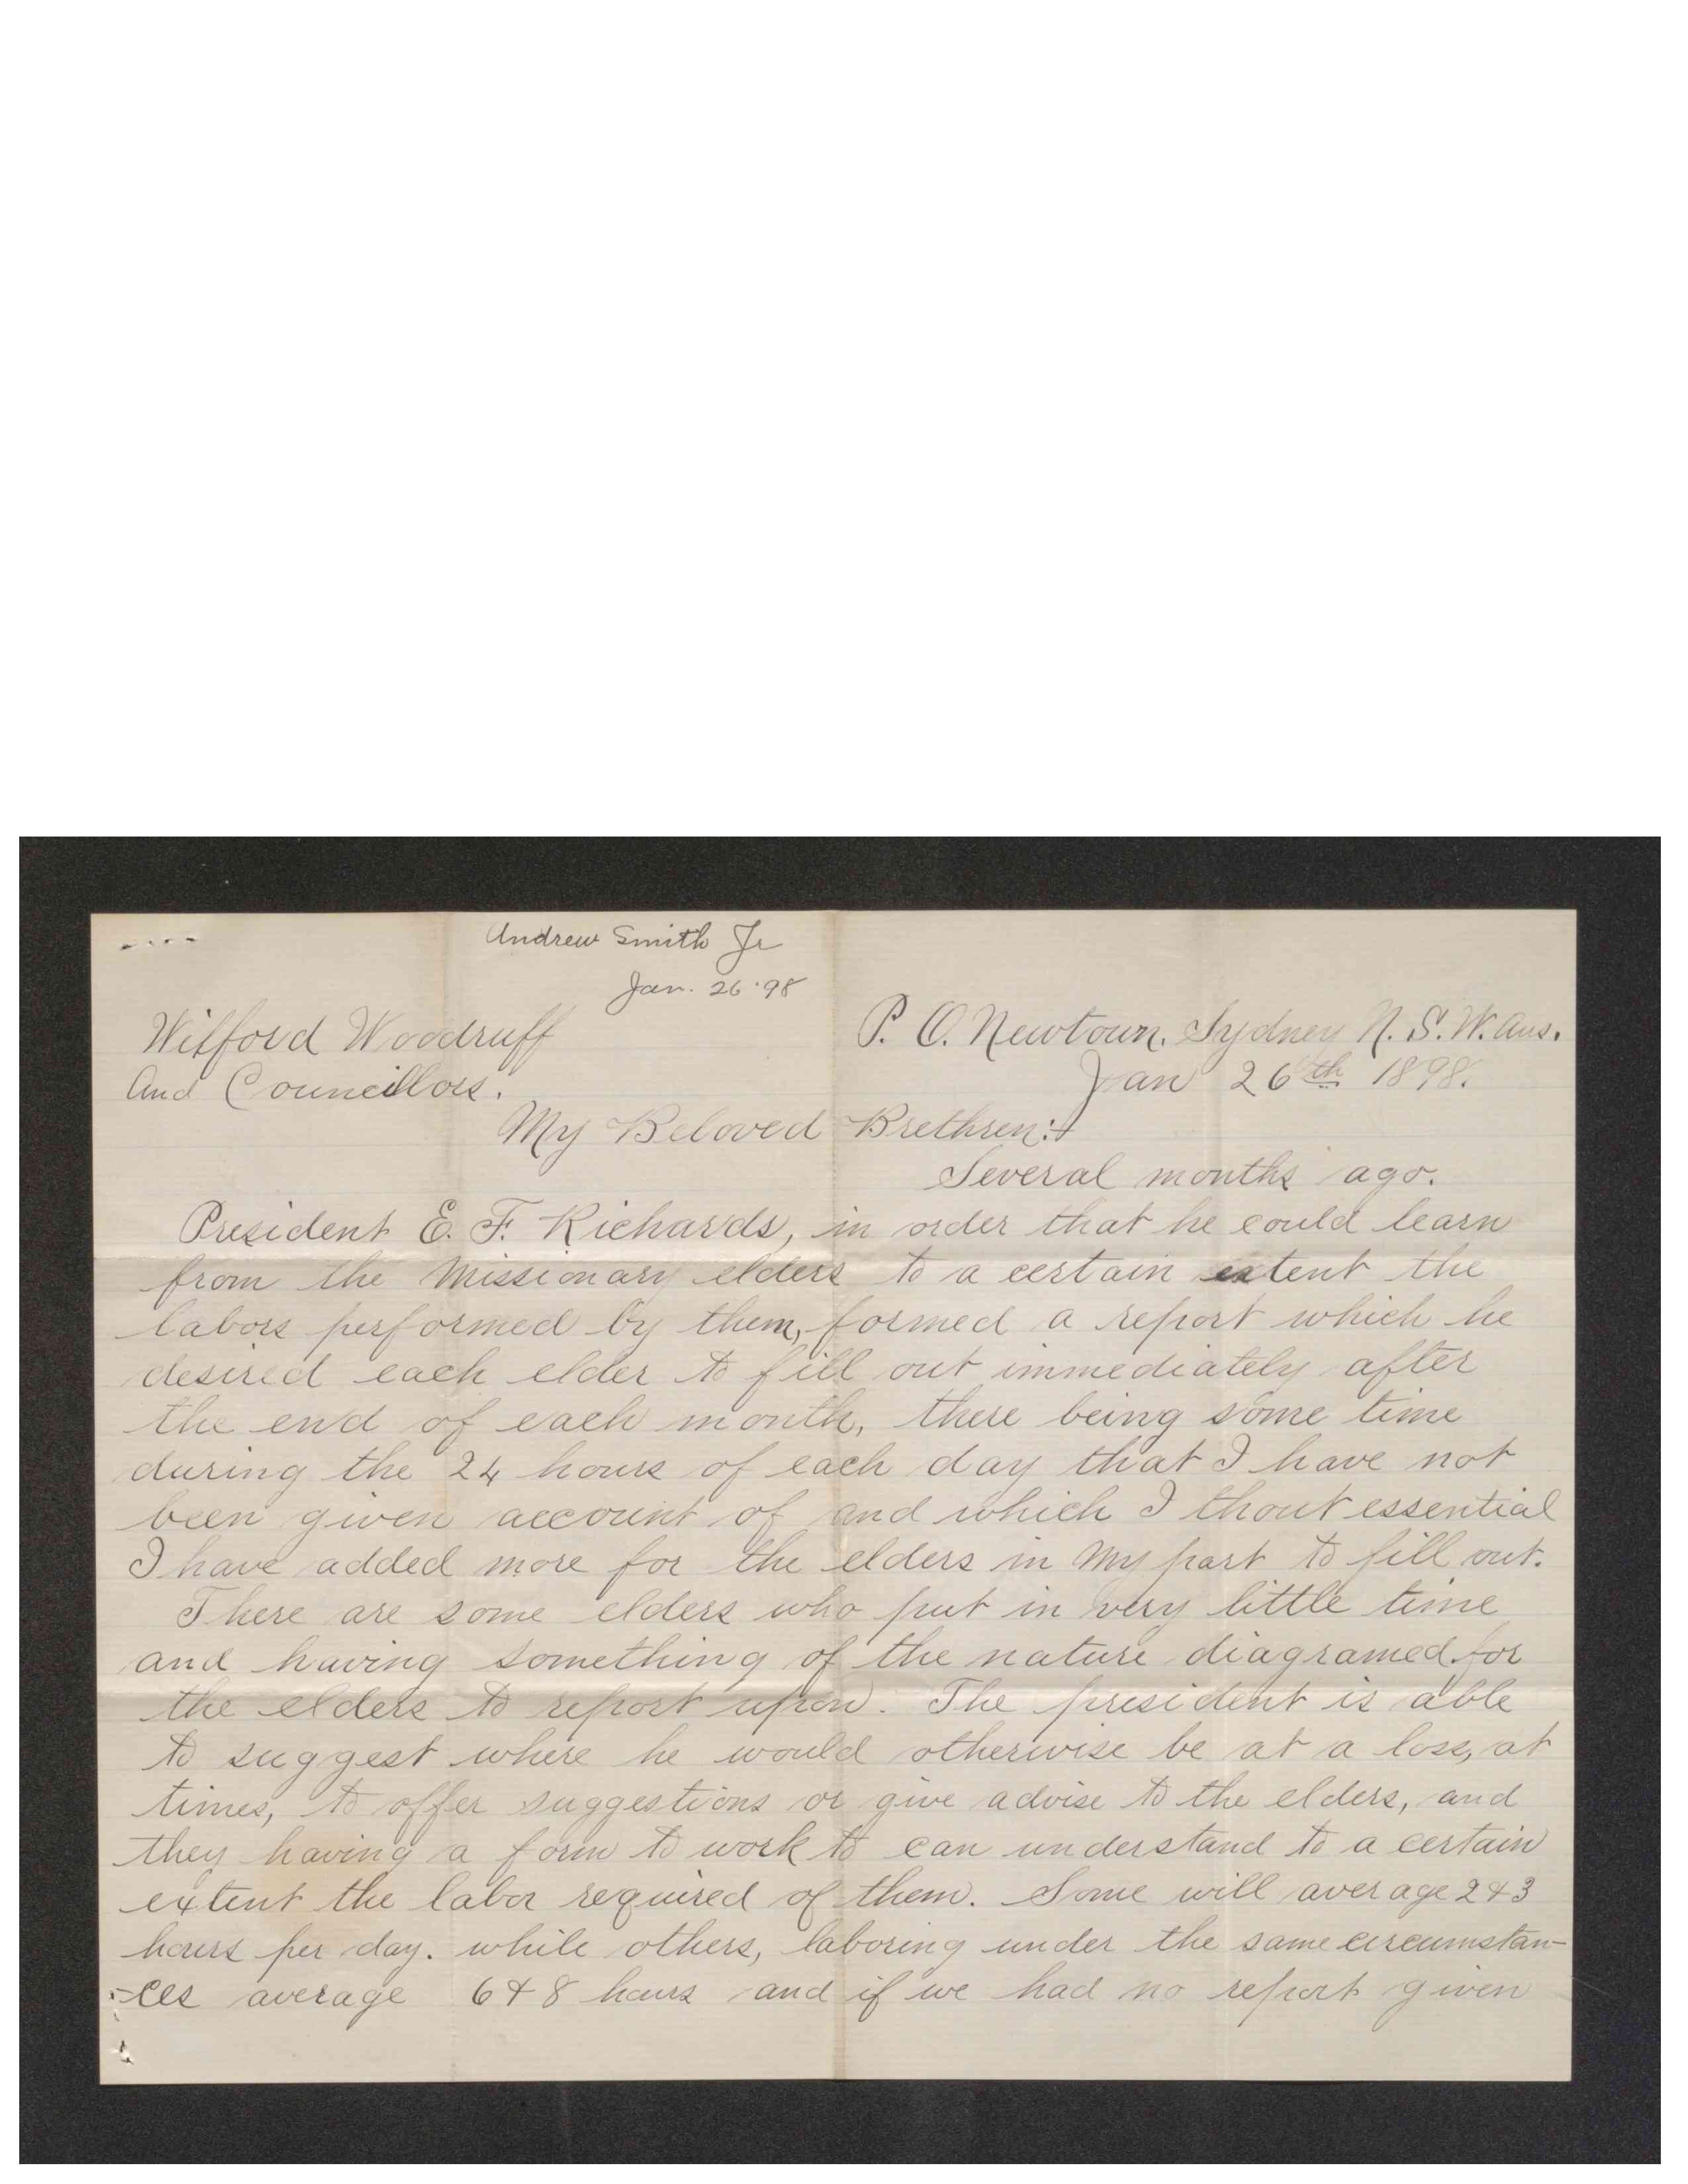 Andrew Smith Jr
Jan. 26 '98
Wilford Woodruff
And Councillors.
P. O. Newtown. Sydney N. S. W. Aus.
Jan 26th 1898.
My Beloved Brethren:-
Several months ago.
President E. F. Richards, in order that he could learn
from the Missionary elders to a certain extent the
labors performed by them, formed a report which he
desired each elder to fill out immediately after
the end of each month, there being some time
during the 24 hours of each day that I have not
been given account of and which I thout essential
I have added more for the elders in my part to fill out.
There are some elders who put in very little time
and having something of the nature diagramed for
the elders to report upon. The president is able
to suggest where he would otherwise be at a loss, at
times, to offer suggestions or give advise to the elders, and
they having a form to work to can understand to a certain
extent the labor required of them. Some will average 2 & 3
hours per day. while others, laboring under the same circumstan-
-ces average 6 & 8 hours and if we had no report given